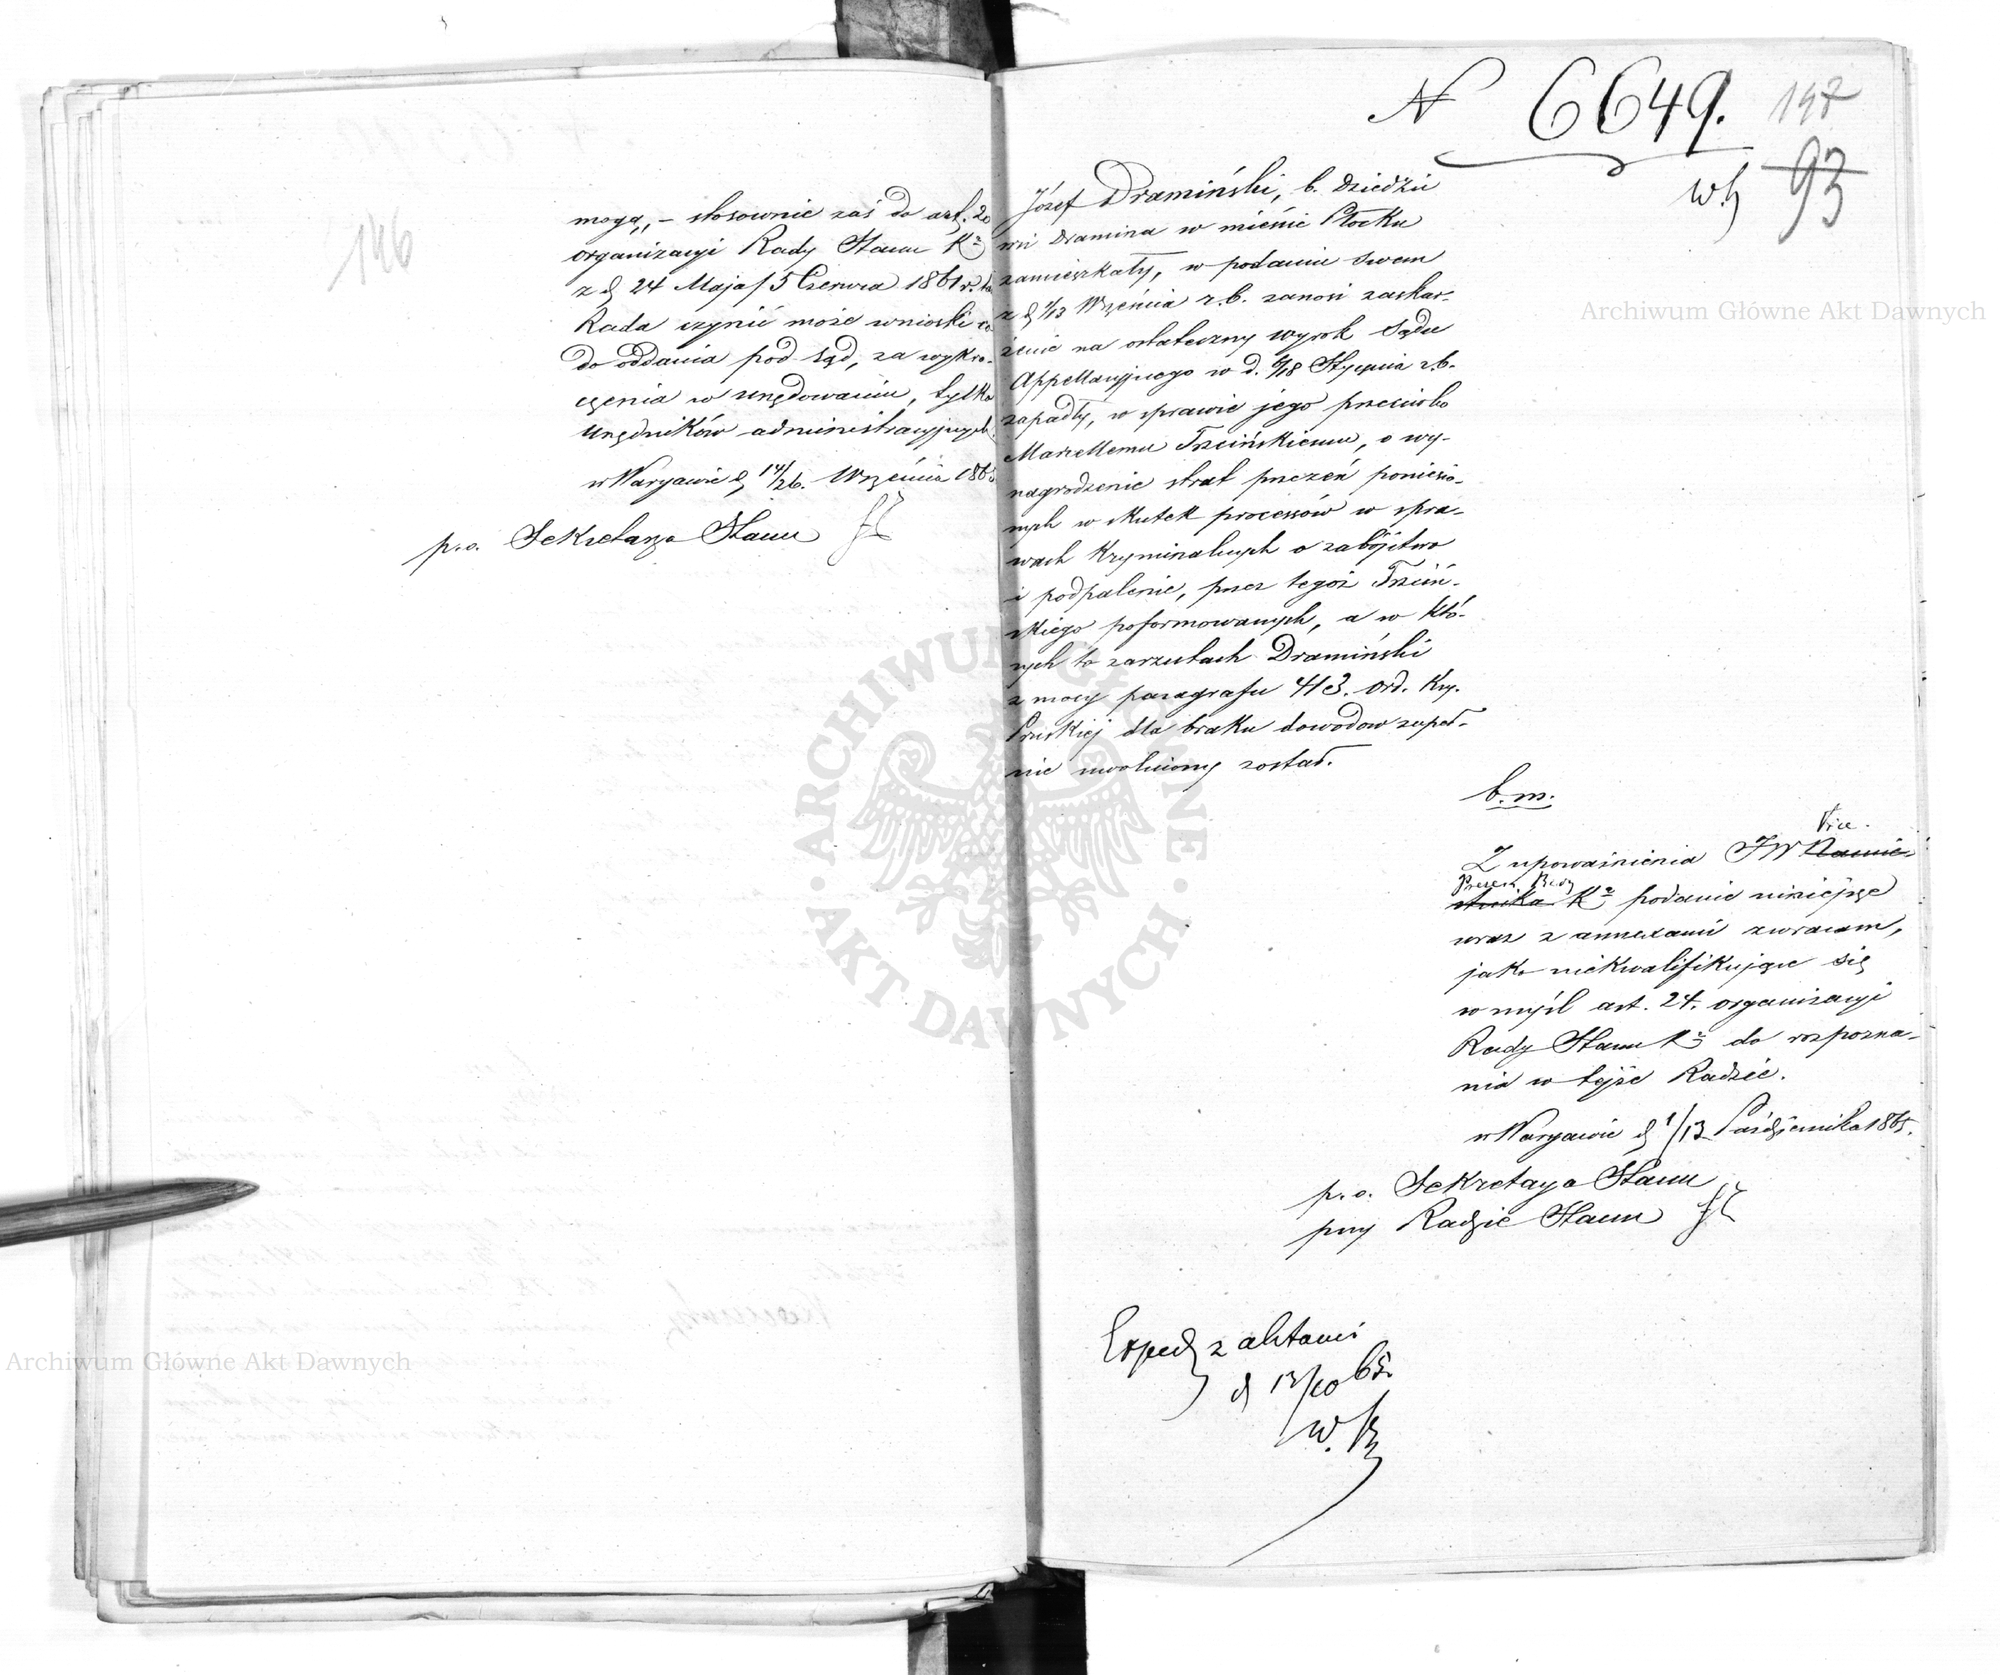 146
mogą„ – stosownie zaś do art. 20
organizacyi Rady Stanu Kr
z d. 24 Maja/5 Czerwca 1861 r. ta
Rada czynić może wnioski co
do oddania pod Sąd, za wykro-
czenia w urzędowaniu, tylko
Urzędników administracyjnych
w Warszawie d. 14/26. Września 1865
p.o. Sekretarza Stanu
N 6649.
147
93
Józef Dramiński, b. Dziedzic
wsi Dramina w mieście Płocku
zamieszkały, w podaniu swem
z d. 1/13 Września r.b. zanosi zaskar-
żenie na ostateczny wyrok Sądu
Appellacyjnego w d. 6/18 Stycznia r.b.
zapadły, w sprawie jego przeciwko
Marcellemu Trzcińskiemu, o wy-
nagrodzenie strat przezeń poniesio-
nych w skutek processów w spra-
wach Kryminalnych o zabójstwo
i podpalenie, przez tegoż Trzciń-
skiego poformowanych, a w któ-
rych to zarzutach Dramiński
z mocy paragrafu 413. Ord. Kry.
Pruskiej dla braku dowodow zupeł-
nie uwolniony został.
b.m.
Vice.
Z upoważnienia JW Namie-
Prezesa Rady
stnika Kr podanie niniejsze
wraz z annexami zwracam,
jako niekwalifikujące się
w myśl art. 24. organizacyi
Rady Stanu Kr do rozpozna-
nia w tejże Radzie.
w Warszawie d. 1/13 Października 1865.
p.o. Sekretarza Stanu
przy Radzie Stanu
Exped z aktami
d 13/10 65.
Archiwum Główne Akt Dawnych
Archiwum Główne Akt Dawnych
ARCHIWUM GŁÓWNE
AKT DAWNYCH